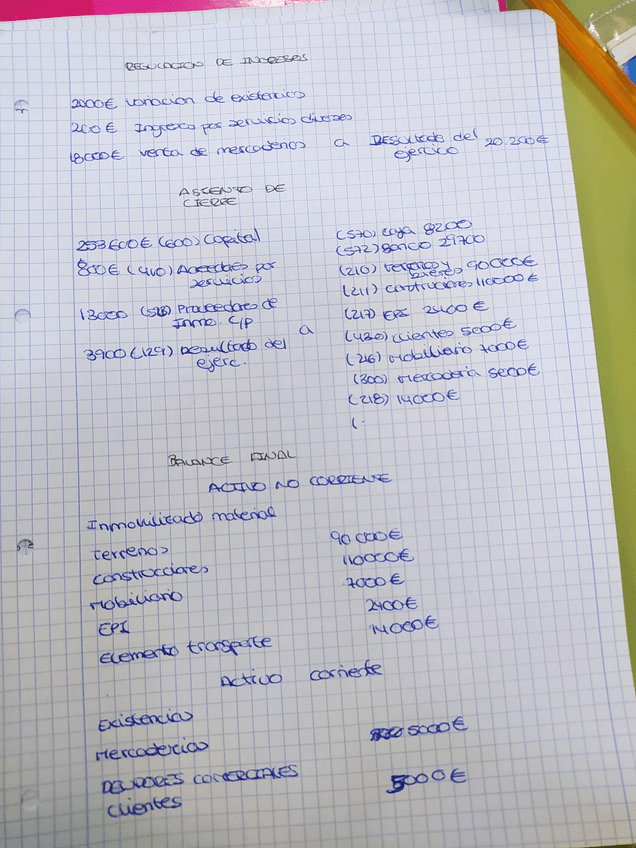 REGULACION DE INGRESOS
2000€ variacion de existencias
200€ Ingresos por servicios diversos
18000€ venta de mercaderias a Resultado del ejercicio 20.200€
ASCENTO DE
CIERRE
253600€ (600) Capital
800€ (410) Acreedores por
servicios
13000 (523) Proveedores de
Inmo. C/P
3900 (129) Resultado del
ejerc.
a
(570) caja 8200
(572) Banco 29700
(210) terrenos y
bienes 90000€
(211) construciones 110000€
(217) EPI 2400€
(430) clientes 5000€
(216) Mobiliario 7000€
(300) Mercaderia 5000€
(218) 14000€
(.
BALANCE FINAL
ACTIVO NO CORRIENTE
Inmovilizado material
Terrenos 90000€
Construcciones 110000€
Mobiliario 7000€
EPI 2400€
Elemento transporte 14000€
Activo corriente
Existencias
Mercadecias 5000€
DEUDORES COMERCIALES
Clientes 5000€